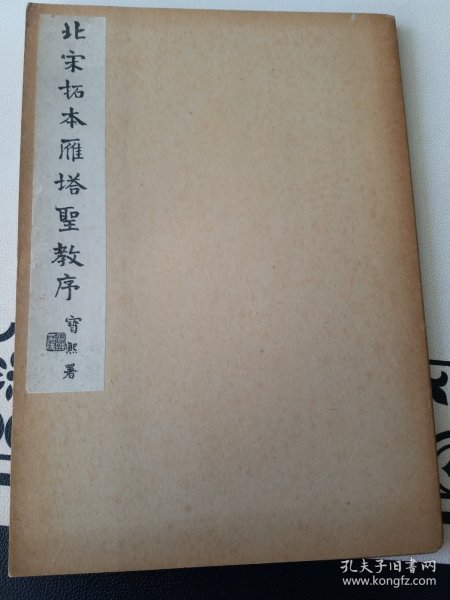 北宋拓本雁塔聖教序
寶熙署
孔夫子旧书网
www.kongfz.com